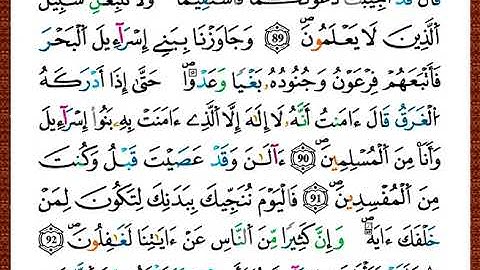 قَالَ قَدۡ أُجِيبَت دَّعۡوَتُكُمَا فَٱسۡتَقِيمَا وَلَا تَتَّبِعَآنِّ سَبِيلَ
ٱلَّذِينَ لَا يَعۡلَمُونَ ۖ 89 وَجَٰوَزۡنَا بِبَنِے إِسۡرَآءِيلَ ٱلۡبَحۡرَ
فَأَتۡبَعَهُمۡ فِرۡعَوۡنُ وَجُنُودُهُۥ بَغۡيٗا وَعَدۡوًا ۖ حَتَّىٰٓ إِذَآ أَدۡرَكَهُ
ٱلۡغَرَقُ قَالَ ءَامَنتُ أَنَّهُۥ لَآ إِلَٰهَ إِلَّا ٱلَّذِے ءَامَنَتۡ بِهِۦ بَنُوٓاْ إِسۡرَآءِيلَ
وَأَنَا۠ مِنَ ٱلۡمُسۡلِمِينَ ۖ 90 ءَآلَٰنَ وَقَدۡ عَصَيۡتَ قَبۡلُ وَكُنتَ
مِنَ ٱلۡمُفۡسِدِينَ ۖ 91 فَٱلۡيَوۡمَ نُنَجِّيكَ بِبَدَنِكَ لِتَكُونَ لِمَنۡ
خَلۡفَكَ ءَايَةٗ ۖ وَإِنَّ كَثِيرٗا مِّنَ ٱلنَّاسِ عَنۡ ءَايَٰتِنَا لَغَٰفِلُونَ ۖ 92